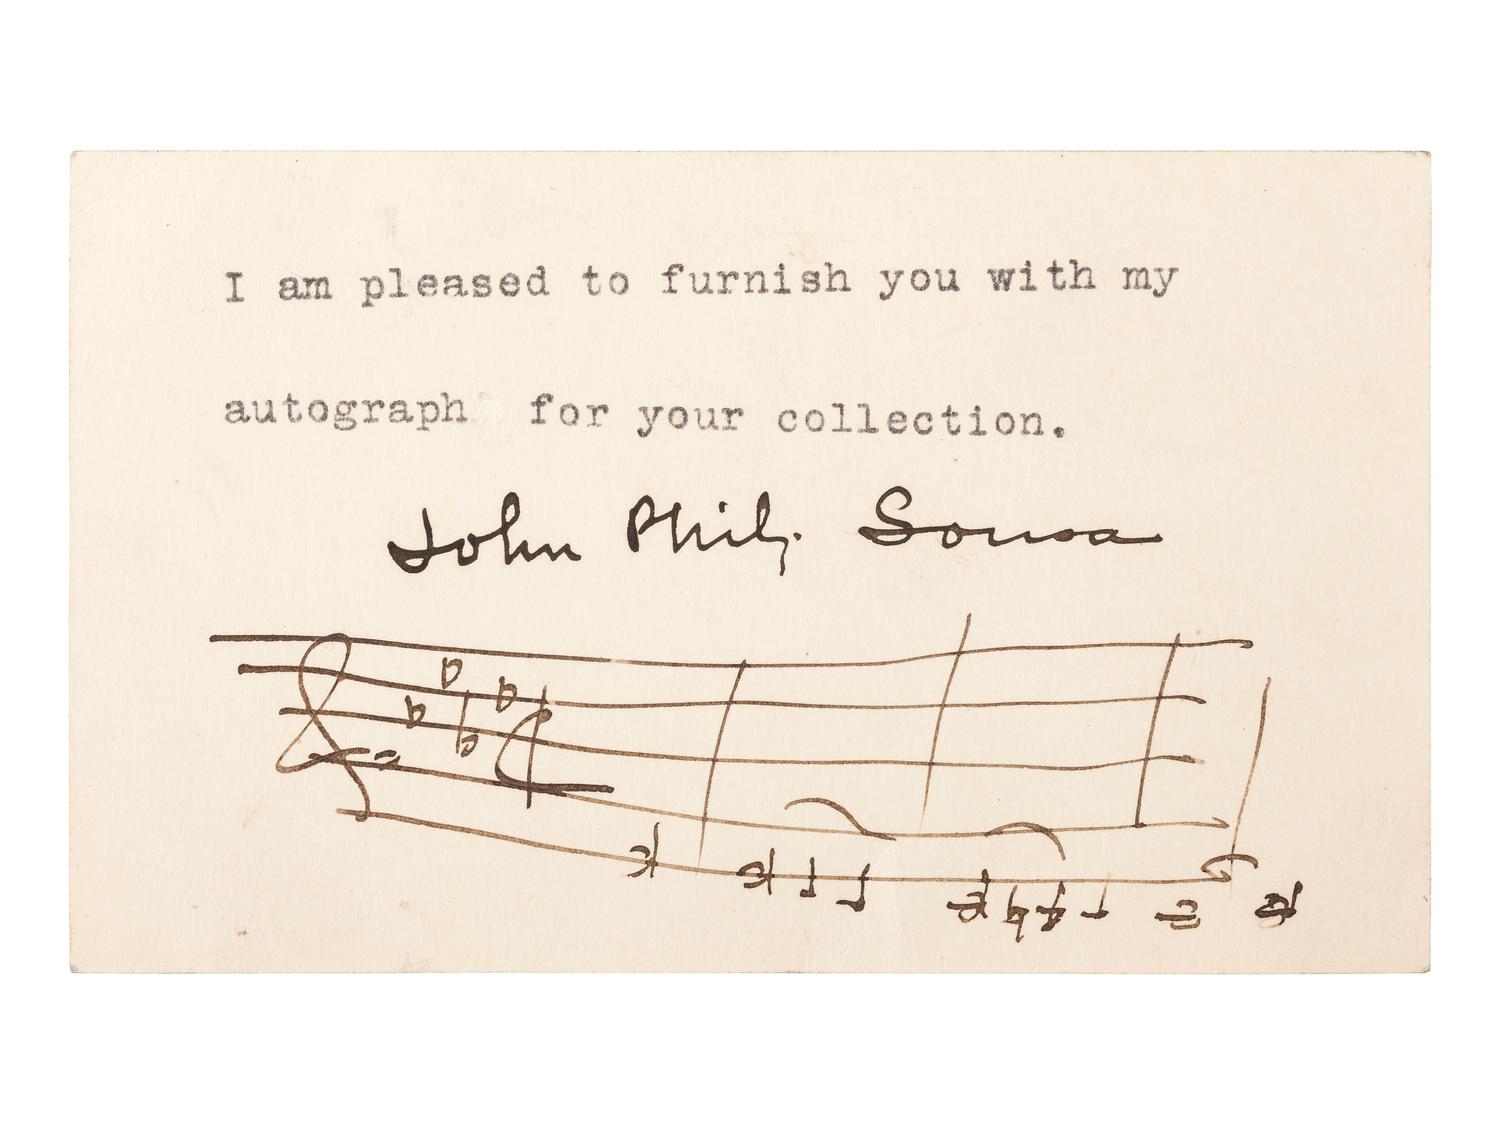 I am pleased to furnish you with my
autograph for your collection.
John Philip Sousa